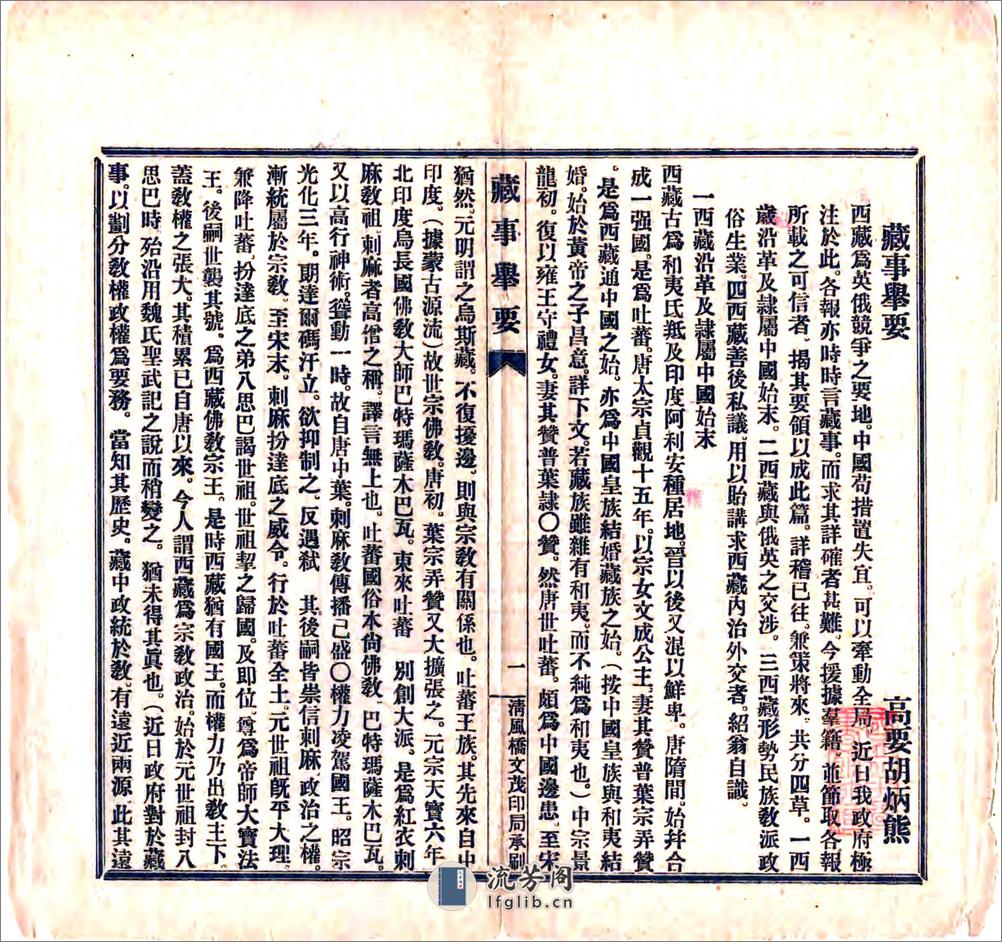 藏事舉要
高要胡炳熊
西藏爲英俄競爭之要地。中國苟措置失宜。可以牽動全局。近日我政府極
注於此。各報亦時時言藏事。而求其詳確者甚難。今援據羣籍。並節取各報
所載之可信者。揭其要領以成此篇。詳稽已往。兼策將來。共分四草。一西
藏沿革及隸屬中國始末。二西藏與俄英之交涉。三西藏形勢民族敎派政
俗生業。四西藏善後私議。用以貽講求西藏內治外交者。紹翁自識。
一西藏沿革及隸屬中國始末
西藏古爲和夷氐羝及印度阿利安種居地。晉以後又混以鮮卑。唐隋間。始幷合
成一强國。是爲吐蕃。唐太宗貞觀十五年。以宗女文成公主。妻其贊普葉宗弄贊
。是爲西藏通中國之始。亦爲中國皇族結婚藏族之始。(按中國皇族與和夷結
婚。始於黃帝之子昌意。詳下文。若藏族雖雜有和夷。而不純爲和夷也。)中宗景
龍初。復以雍王守禮女。妻其贊普葉隸〇贊。然唐世吐蕃。頗爲中國邊患。至宋
藏事舉要
一
淸風橋文茂印局承刷
猶然。元明謂之烏斯藏。不復擾邊。則與宗敎有關係也。吐蕃王族。其先來自中
印度。(據蒙古源流)故世宗佛敎。唐初。葉宗弄贊又大擴張之。元宗天寶六年
北印度烏長國佛敎大師巴特瑪薩木巴瓦。東來吐蕃 別創大派。是爲紅衣剌
麻敎祖。剌麻者高僧之稱。譯言無上也。吐蕃國俗本尙佛敎。巴特瑪薩木巴瓦。
又以高行神術。聳動一時。故自唐中葉。剌麻敎傳播已盛〇權力凌駕國王。昭宗
光化三年。期達爾碼汗立。欲抑制之。反遇弒 其後嗣皆崇信剌麻。政治之權。
漸統屬於宗敎。至宋末。剌麻扮達底之威令。行於吐蕃全土。元世祖旣平大理。
兼降吐蕃。扮達底之弟八思巴謁世祖。世祖挈之歸國。及卽位。尊爲帝師大寶法
王。後嗣世襲其號。爲西藏佛敎宗王。是時西藏猶有國王。而權力乃出敎主下。
蓋敎權之張大。其積累已自唐以來。今人謂西藏爲宗敎政治。始於元世祖封八
思巴時。殆沿用魏氏聖武記之說而稍變之。猶未得其眞也。(近日政府對於藏
事。以劃分敎權政權爲要務。當知其歷史。藏中政統於敎。有遠近兩源。此其遠
流芳阁
lfglib.cn